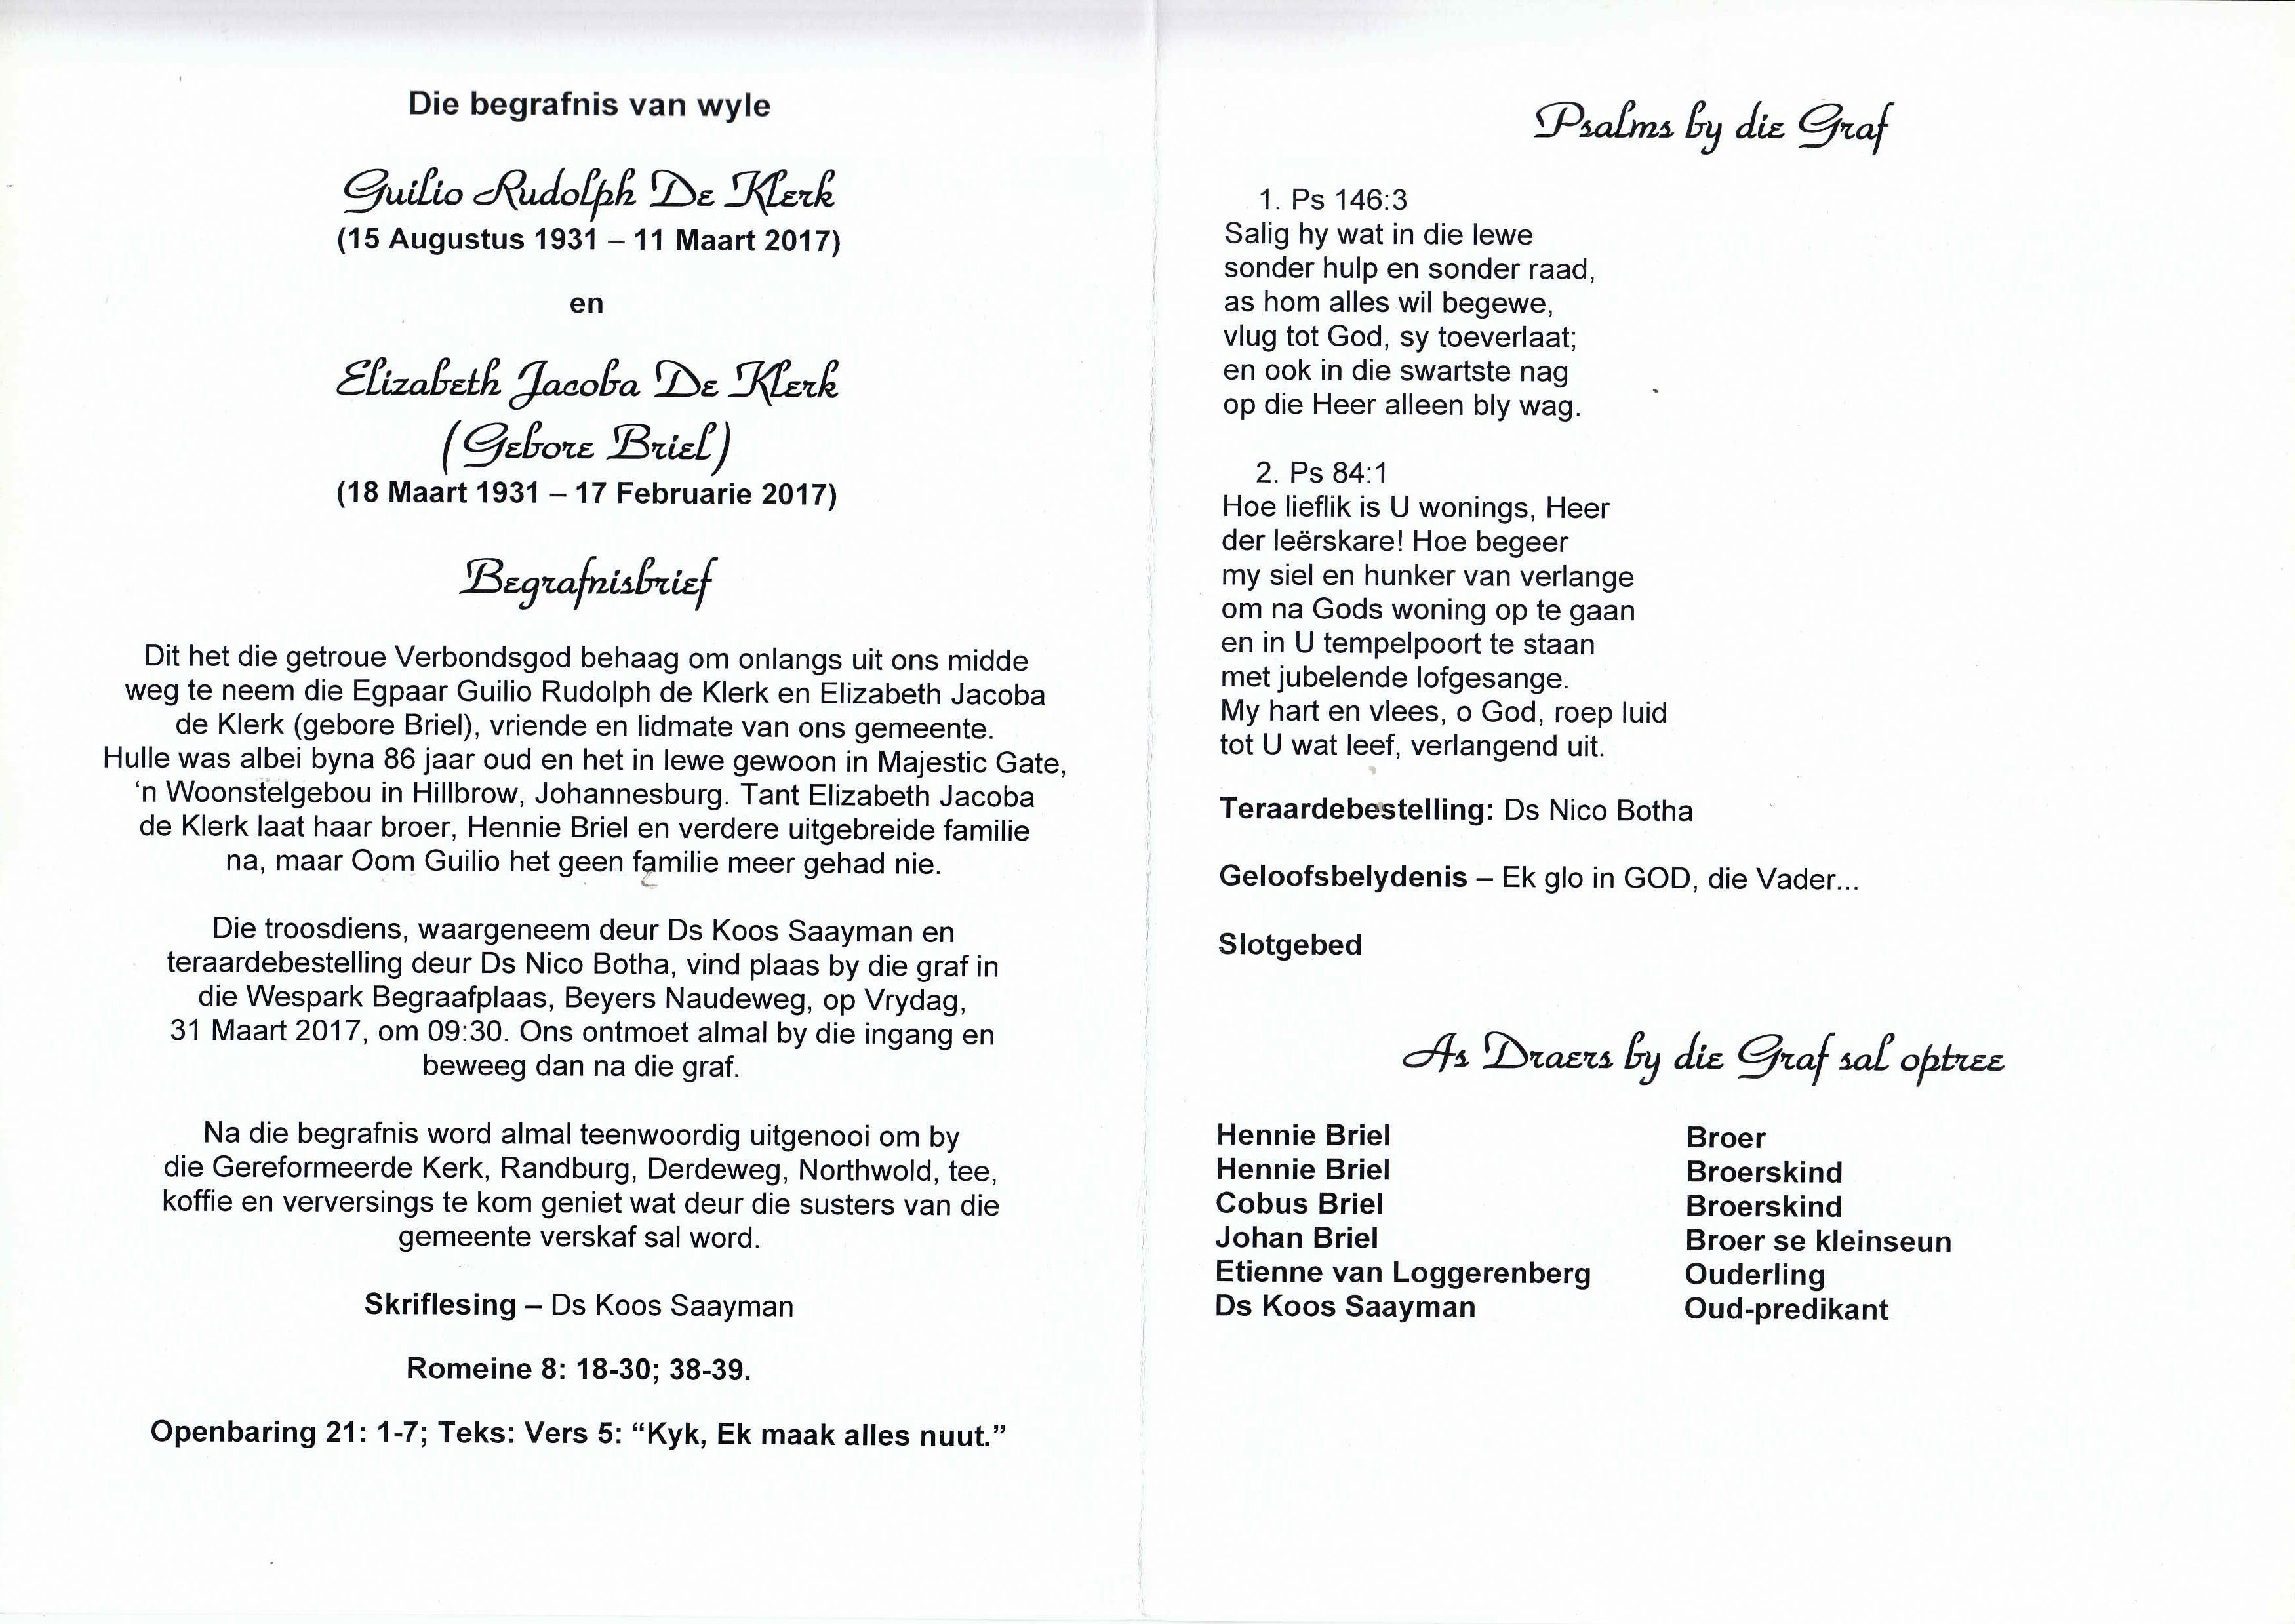 Die begrafnis van wyle
Guilio Rudolph De Klerk
(15 Augustus 1931 – 11 Maart 2017)
en
Elizabeth Jacoba De Klerk
(Gebore Briel)
(18 Maart 1931 – 17 Februarie 2017)
Begrafnisbrief
Dit het die getroue Verbondsgod behaag om onlangs uit ons midde
weg te neem die Egpaar Guilio Rudolph de Klerk en Elizabeth Jacoba
de Klerk (gebore Briel), vriende en lidmate van ons gemeente.
Hulle was albei byna 86 jaar oud en het in lewe gewoon in Majestic Gate,
‘n Woonstelgebou in Hillbrow, Johannesburg. Tant Elizabeth Jacoba
de Klerk laat haar broer, Hennie Briel en verdere uitgebreide familie
na, maar Oom Guilio het geen familie meer gehad nie.
Die troosdiens, waargeneem deur Ds Koos Saayman en
teraardebestelling deur Ds Nico Botha, vind plaas by die graf in
die Wespark Begraafplaas, Beyers Naudeweg, op Vrydag,
31 Maart 2017, om 09:30. Ons ontmoet almal by die ingang en
beweeg dan na die graf.
Na die begrafnis word almal teenwoordig uitgenooi om by
die Gereformeerde Kerk, Randburg, Derdeweg, Northwold, tee,
koffie en verversings te kom geniet wat deur die susters van die
gemeente verskaf sal word.
Skriflesing – Ds Koos Saayman
Romeine 8: 18-30; 38-39.
Openbaring 21: 1-7; Teks: Vers 5: “Kyk, Ek maak alles nuut.”
Psalms by die Graf
1. Ps 146:3
Salig hy wat in die lewe
sonder hulp en sonder raad,
as hom alles wil begewe,
vlug tot God, sy toeverlaat;
en ook in die swartste nag
op die Heer alleen bly wag.
2. Ps 84:1
Hoe lieflik is U wonings, Heer
der leërskare! Hoe begeer
my siel en hunker van verlange
om na Gods woning op te gaan
en in U tempelpoort te staan
met jubelende lofgesange.
My hart en vlees, o God, roep luid
tot U wat leef, verlangend uit.
Teraardebestelling: Ds Nico Botha
Geloofsbelydenis – Ek glo in GOD, die Vader...
Slotgebed
As Draers by die Graf sal optree
Hennie Briel Broer
Hennie Briel Broerskind
Cobus Briel Broerskind
Johan Briel Broer se kleinseun
Etienne van Loggerenberg Ouderling
Ds Koos Saayman Oud-predikant